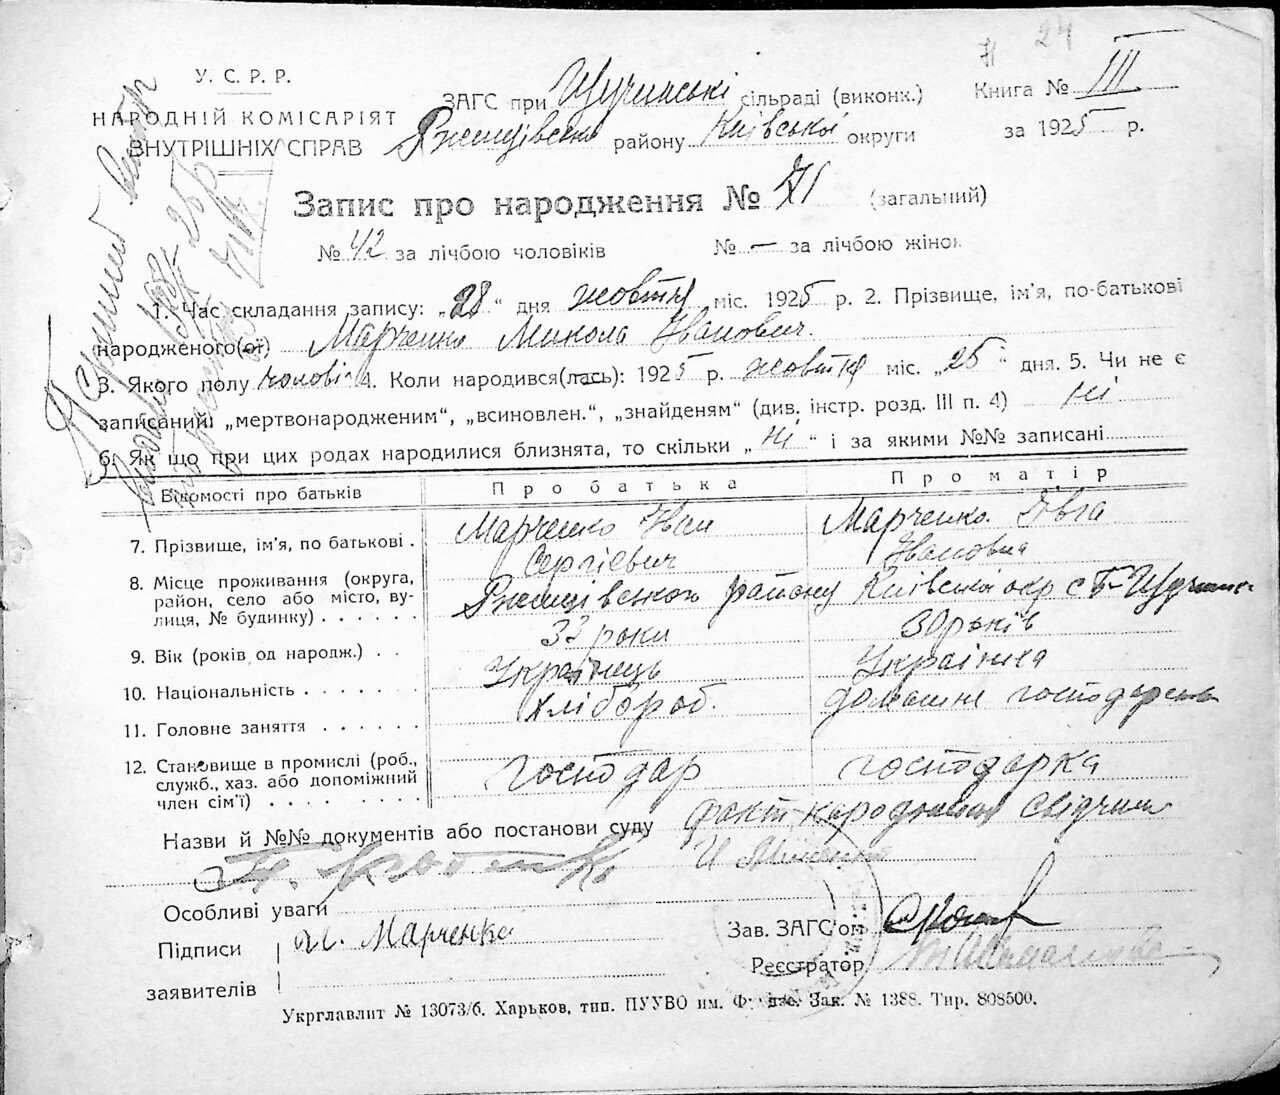 24
У. С. Р. Р.
НАРОДНІЙ КОМІСАРІЯТ
ВНУТРІШНІХ СПРАВ
ЗАГС при Щучинські сільраді (виконк.)
Ржищівсько району Київської округи
Книга № III
за 1925 р.
Запис про народження № 71 (загальний)
№ 42 за лічбою чоловіків № — за лічбою жінок
1. Час складання запису: „28“ дня жовтня міс. 1925 р. 2. Прізвище, ім'я, по-батькові
народженого(ої) Марченко Микола Іванович.
3. Якого полу чолові 4. Коли народився(лась): 1925 р. жовтня міс. „25“ дня. 5. Чи не є
записаний „мертвонародженим“, „всиновлен.“, „знайденям“ (див. інстр. розд. III п. 4) ні
6. Як що при цих родах народилися близнята, то скільки „ні“ і за якими №№ записані
Відомості про батьків
Про батька
Про матір
7. Прізвище, ім'я, по батькові .
Марченко Іван
Сергієвич
Марченко Явга
Івановна
8. Місце проживання (округа,
район, село або місто, ву-
лиця, № будинку)
Ржищівського району Київської окр с
9. Вік (років од народж.)
33 роки
30 років
10. Національність
Українець
Українка
11. Головне заняття
хлібороб.
домашнє
12. Становище в промислі (роб.,
служб., хаз. або допоміжний
член сім'ї)
господар
господарка
Назви й №№ документів або постанови суду факт народження свідчили
Особливі уваги
Підписи
заявителів
И. Марченко
Зав. ЗАГС'ом
Реєстратор
Укрглавлит № 13073/б. Харьков, тип. ПУУВО им. Фрунзе. Зак. № 1388. Тир. 808500.